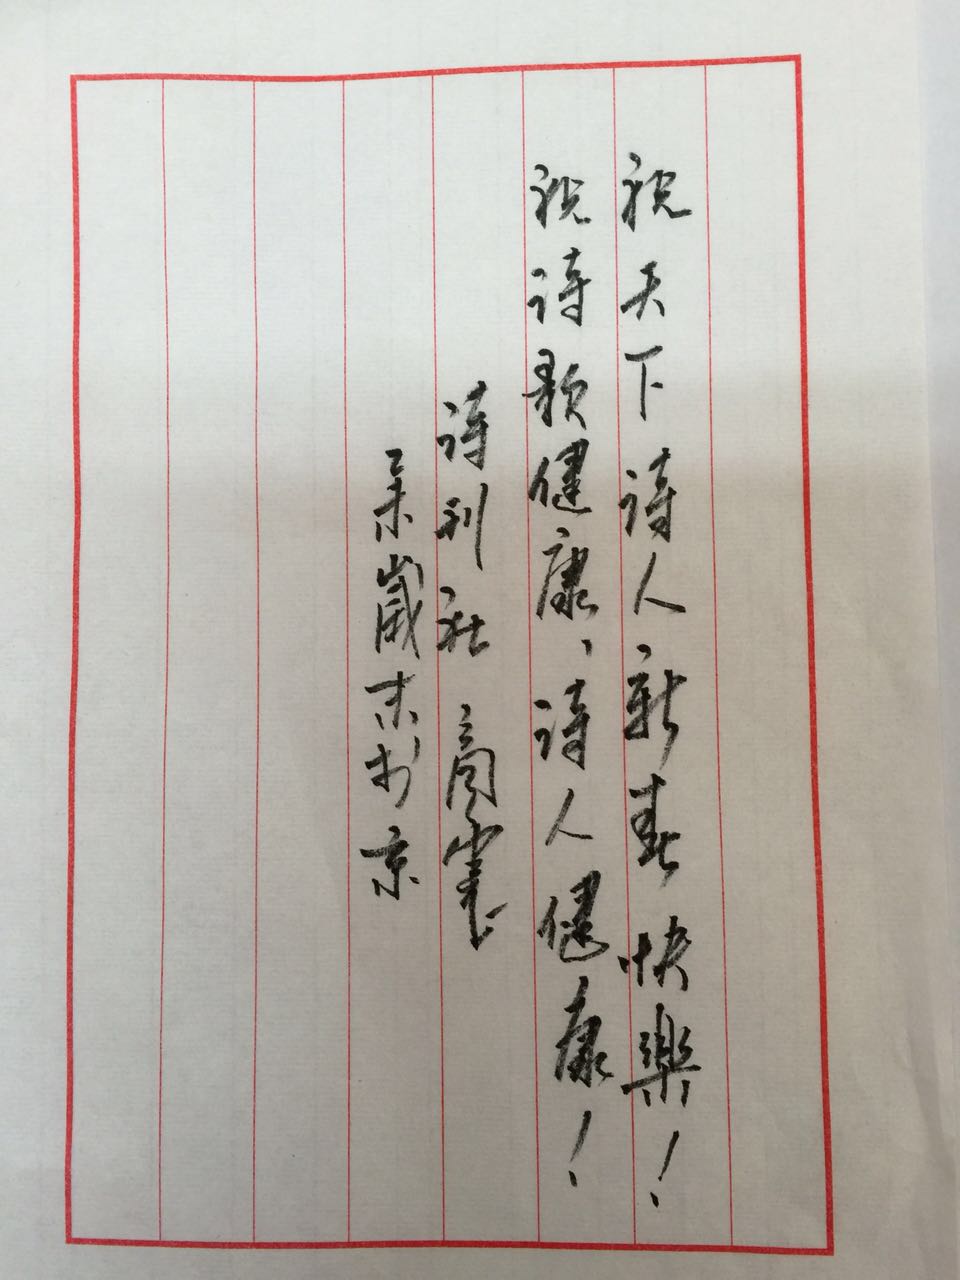 祝天下诗人新春快樂！
祝诗歌健康、诗人健康！
诗刊社 商震
乙未歲末於京